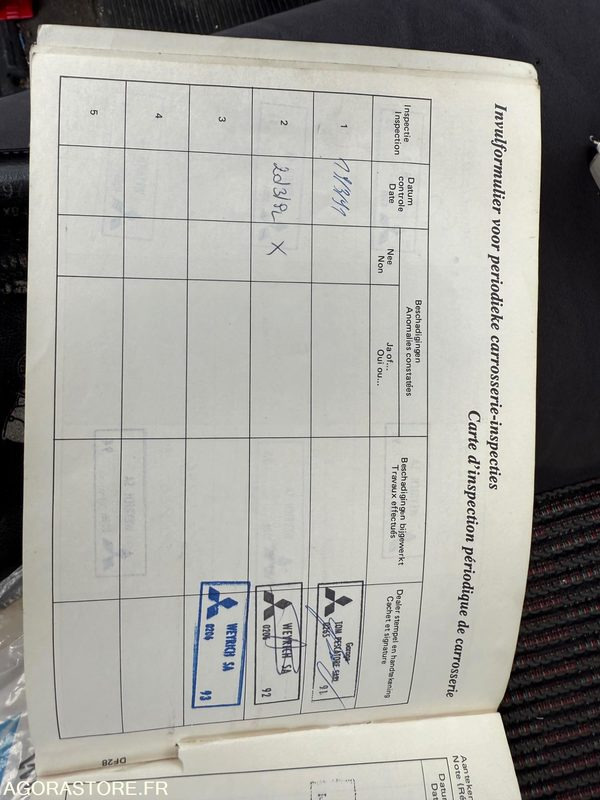 Invulformulier voor periodieke carrosserie-inspecties
Carte d'inspection périodique de carrosserie
Inspectie
Inspection
Datum
controle
Date
Beschadigingen
Anomalies constatées
Nee
Non
Ja of...
Oui ou...
Beschadigingen bijgewerkt
Travaux effectués
Dealer stempel en handtekening
Cachet et signature
1
Garage
0265
91
2
20/3/92
X
WEYRICH SA
0204
92
3
WEYRICH SA
0204
93
4
5
DF28
Note (Ré
AGORASTORE.FR